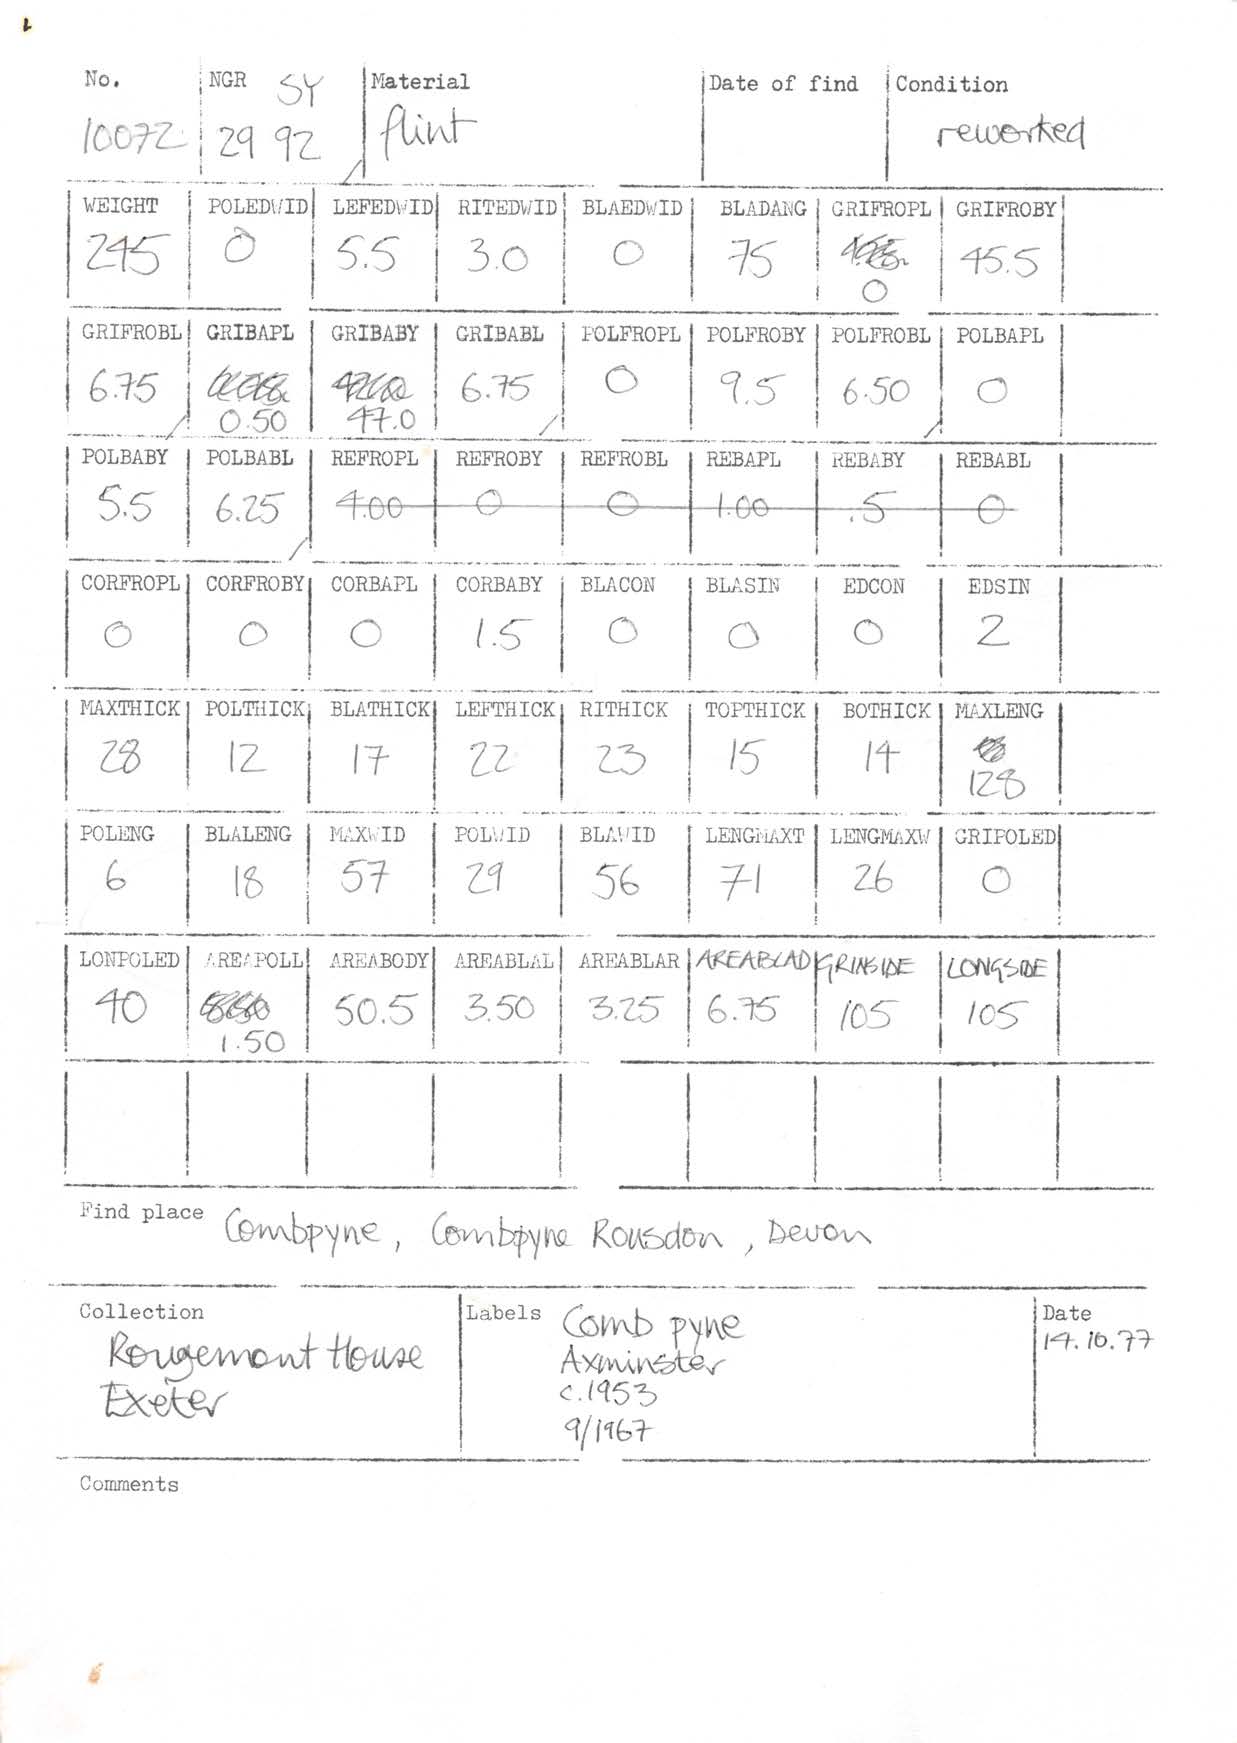 No. NGR SY Material Date of find Condition
10072 29 92 flint reworked
WEIGHT POLEDWID LEFEDWID RITEDWID BLAEDWID BLADANG GRIFROPL GRIFROBY
245 0 5.5 3.0 0 75 0 45.5
GRIFROBL GRIBAPL GRIBABY GRIBABL POLFROPL POLFROBY POLFROBL POLBAPL
6.75 0.50 47.0 6.75 0 9.5 6.50 0
POLBABY POLBABL REFROPL REFROBY REFROBL REBAPL REBABY REBABL
5.5 6.25 4.00 0 0 1.00 .5 0
CORFROPL CORFROBY CORBAPL CORBABY BLACON BLASIN EDCON EDSIN
0 0 0 1.5 0 0 0 2
MAXTHICK POLTHICK BLATHICK LEFTHICK RITHICK TOPTHICK BOTHICK MAXLENG
28 12 17 22 23 15 14 128
POLENG BLALENG MAXWID POLWID BLAWID LENGMAXT LENGMAXW GRIPOLED
6 18 57 29 56 71 26 0
LONPOLED AREAPOLL AREABODY AREABLAL AREABLAR AREABLAD GRINSIDE LONGSIDE
40 1.50 50.5 3.50 3.25 6.75 105 105
Find place Combpyne, Combpyne Rousdon, Devon
Collection Labels Comb pyne Date
Rougemont House Axminster 14.10.77
Exeter c.1953
9/1967
Comments